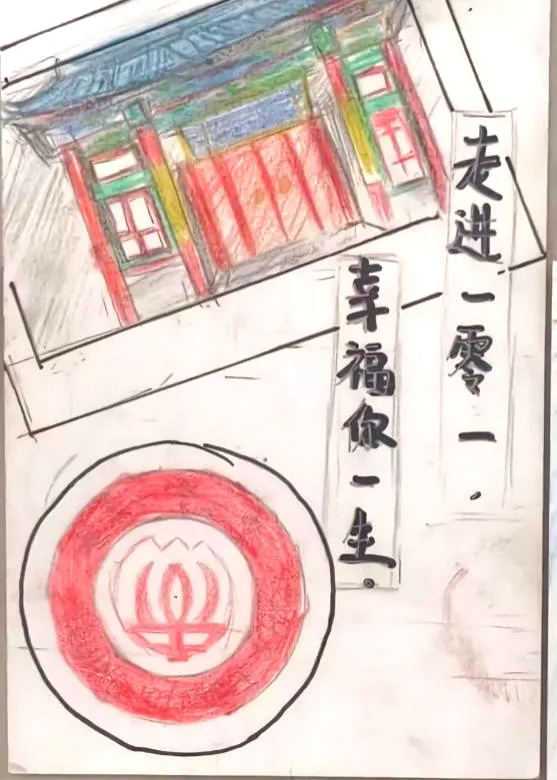 走进一零一.
幸福你一生。